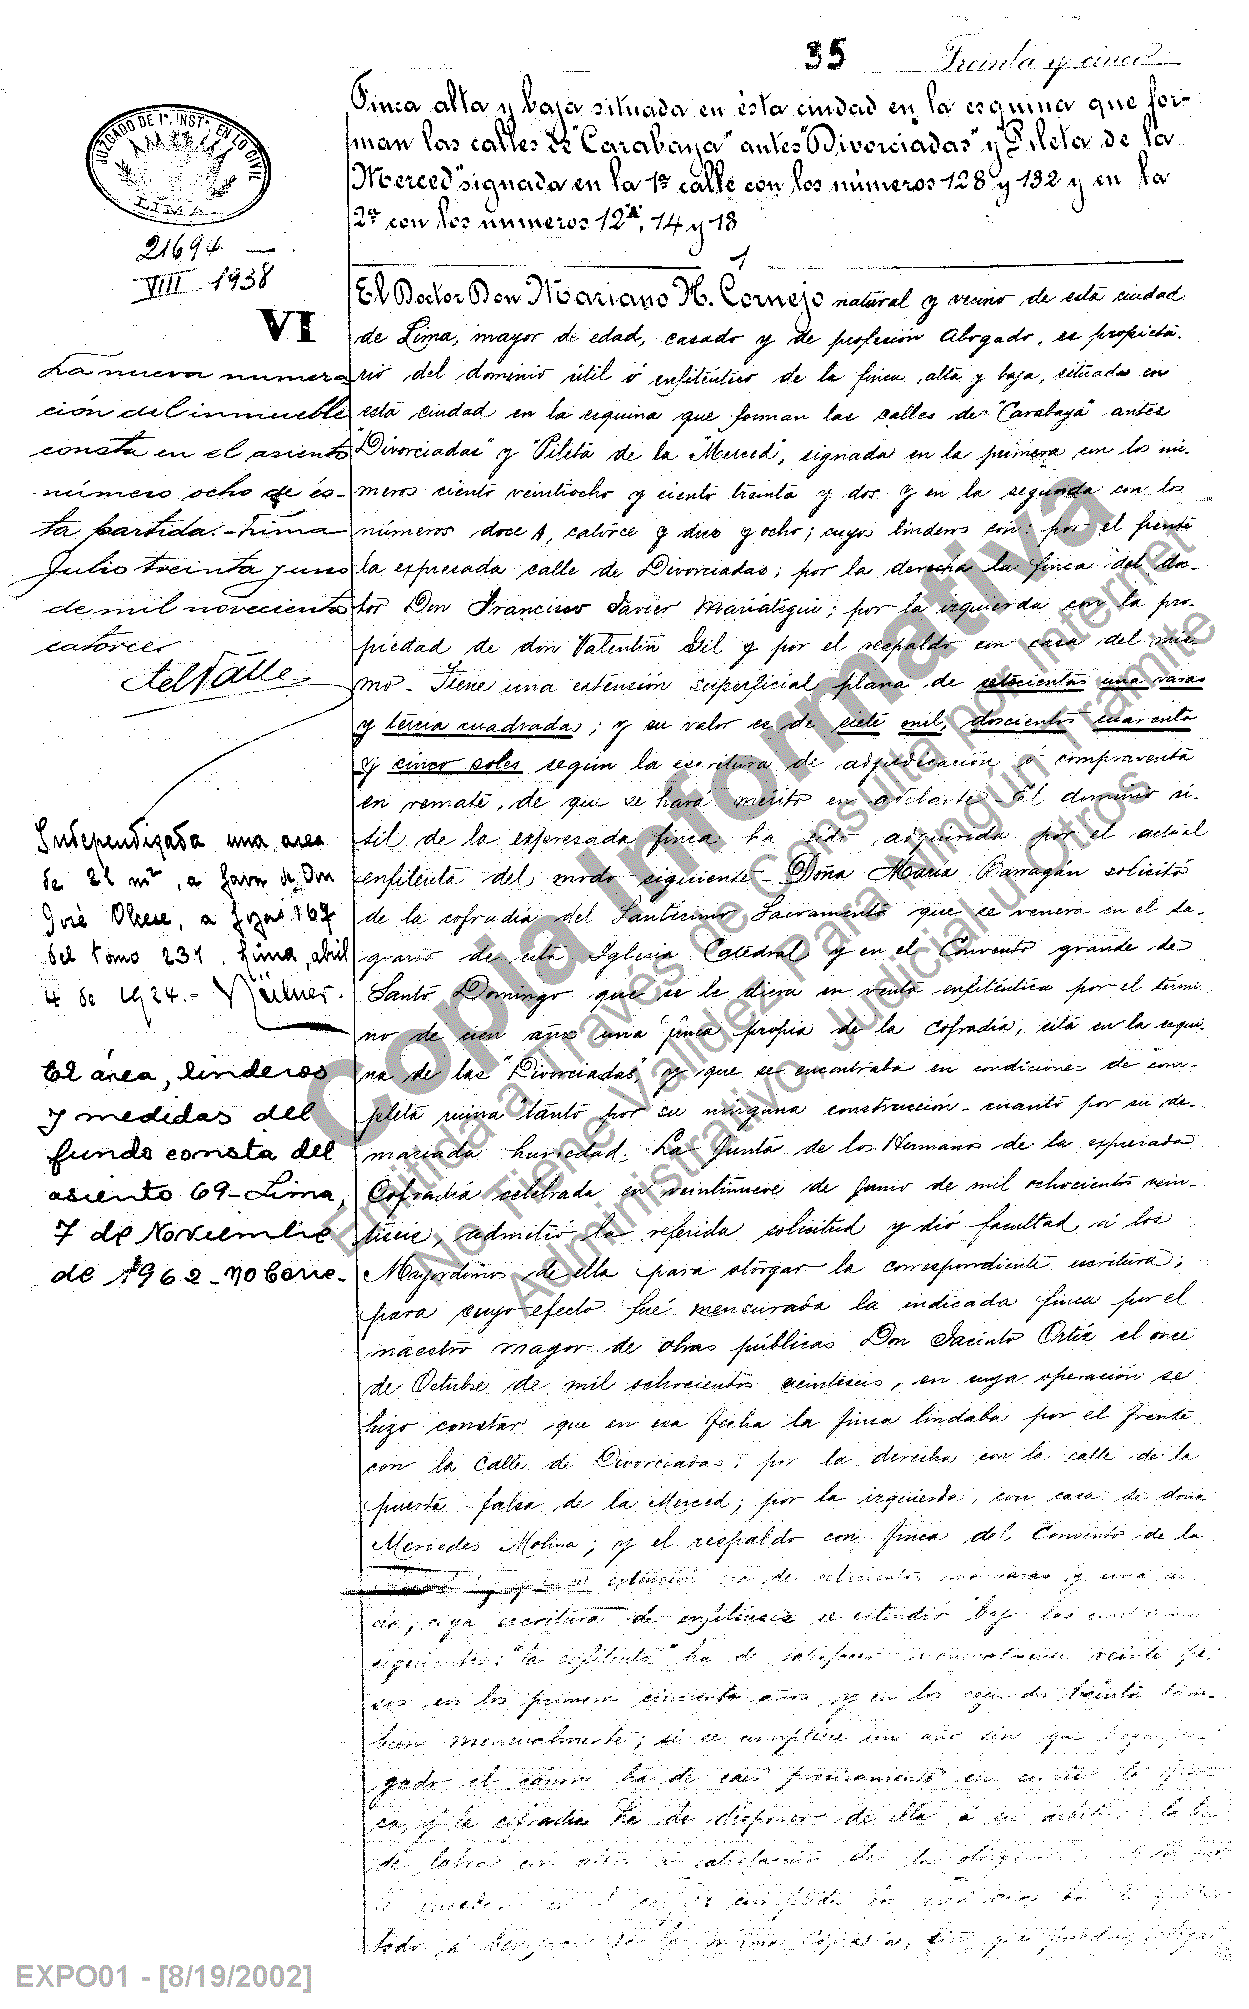 35 Treinta y cinco
Finca alta y baja situada en ésta ciudad en la esquina que for-
man las calles de "Carabaya" antes "Divorciadas" y "Pileta de la
Merced" signada en la 1ª calle con los números 128 y 132 y en la
2ª con los números 12A, 14 y 18
JUZGADO DE 1ª INSTª EN LO CIVIL
LIMA
21694
VIII 1938
VI
La nueva numera
ción del inmueble
consta en el asiento
número ocho de és-
ta partida. - Lima
Julio treinta y uno
de mil novecientos
catorce
del Valle
Independizada una area
de 21 m², a favor de Don
José Olcese, a fojas 167
del tomo 231. Lima, abril
4 de 1924.-
El área, linderos
y medidas del
fundo consta del
asiento 69-Lima,
7 de Noviembre
de 1962-
1
El Doctor Don Mariano H. Cornejo natural y vecino de esta ciudad
de Lima, mayor de edad, casado y de profesión Abogado, es propieta-
rio del dominio útil ó enfitéutico de la finca alta y baja, situada en
esta ciudad en la esquina que forman las calles de "Carabaya" antes
"Divorciadas" y "Pileta de la Merced", signada en la primera con los nú-
meros ciento veintiocho y ciento treinta y dos y en la segunda con los
números doce A, catorce y diez y ocho; cuyos linderos son: por el frente
la expresada calle de Divorciadas; por la derecha la finca del doc-
tor Don Francisco Javier Mariátegui; por la izquierda con la pro-
piedad de don Valentín Gil y por el respaldo con casa del mis-
mo - Tiene una extensión superficial plana de setecientas una varas
y tercia cuadradas; y su valor es de siete mil, doscientos cuarenta
y cinco soles según la escritura de adjudicación ó compraventa
en remate, de que se hará mérito en adelante - El dominio ú-
til de la expresada finca ha sido adquirida por el actual
enfiteuta del modo siguiente - Doña María Barragán solicitó
de la cofradía del Santísimo Sacramento que se venera en el Sa-
grario de esta Iglesia Catedral y en el Convento grande de
Santo Domingo que se le diera en venta enfitéutica por el térmi-
no de cien años una finca propia de la Cofradía, sita en la esqui-
na de las "Divorciadas", y que se encontraba en condiciones de com-
pleta ruina tanto por su ninguna construcción - cuanto por su de-
masiada humedad. La Junta de los Hermanos de la expresada
Cofradía celebrada en veintinueve de Junio de mil ochocientos vein-
tiseis, admitió la referida solicitud y dió facultad á los
Mayordomos de ella para otorgar la correspondiente escritura;
para cuyo efecto fué mensurada la indicada finca por el
maestro mayor de obras públicas Don Jacinto Ortiz el once
de Octubre de mil ochocientos veintiseis, en cuya operación se
hizo constar que en esa fecha la finca lindaba por el frente
con la calle de Divorciadas; por la derecha con la calle de la
puerta falsa de la Merced; por la izquierda, con casa de doña
Mercedes Molina; y el respaldo con finca del Convento de la
extensión de setecientas una varas y una
cia; cuya escritura de enfiteusis se extendió bajo las
siguientes: "la enfiteuta" ha de satisfacer mensualmente veinte pe-
sos en los primeros cincuenta años y en los treinta tam-
bien mensualmente; si se cumpliese un año sin que haya pa-
gado el cánon ha de caer precisamente en la fin-
ca, y la cofradía ha de disponer de ella á su
de
todo á
Copia Informativa
Emitida a Través de Consulta por Internet
No Tiene Validez Para Ningún Trámite
Administrativo, Judicial u Otros
EXPO01 - [8/19/2002]